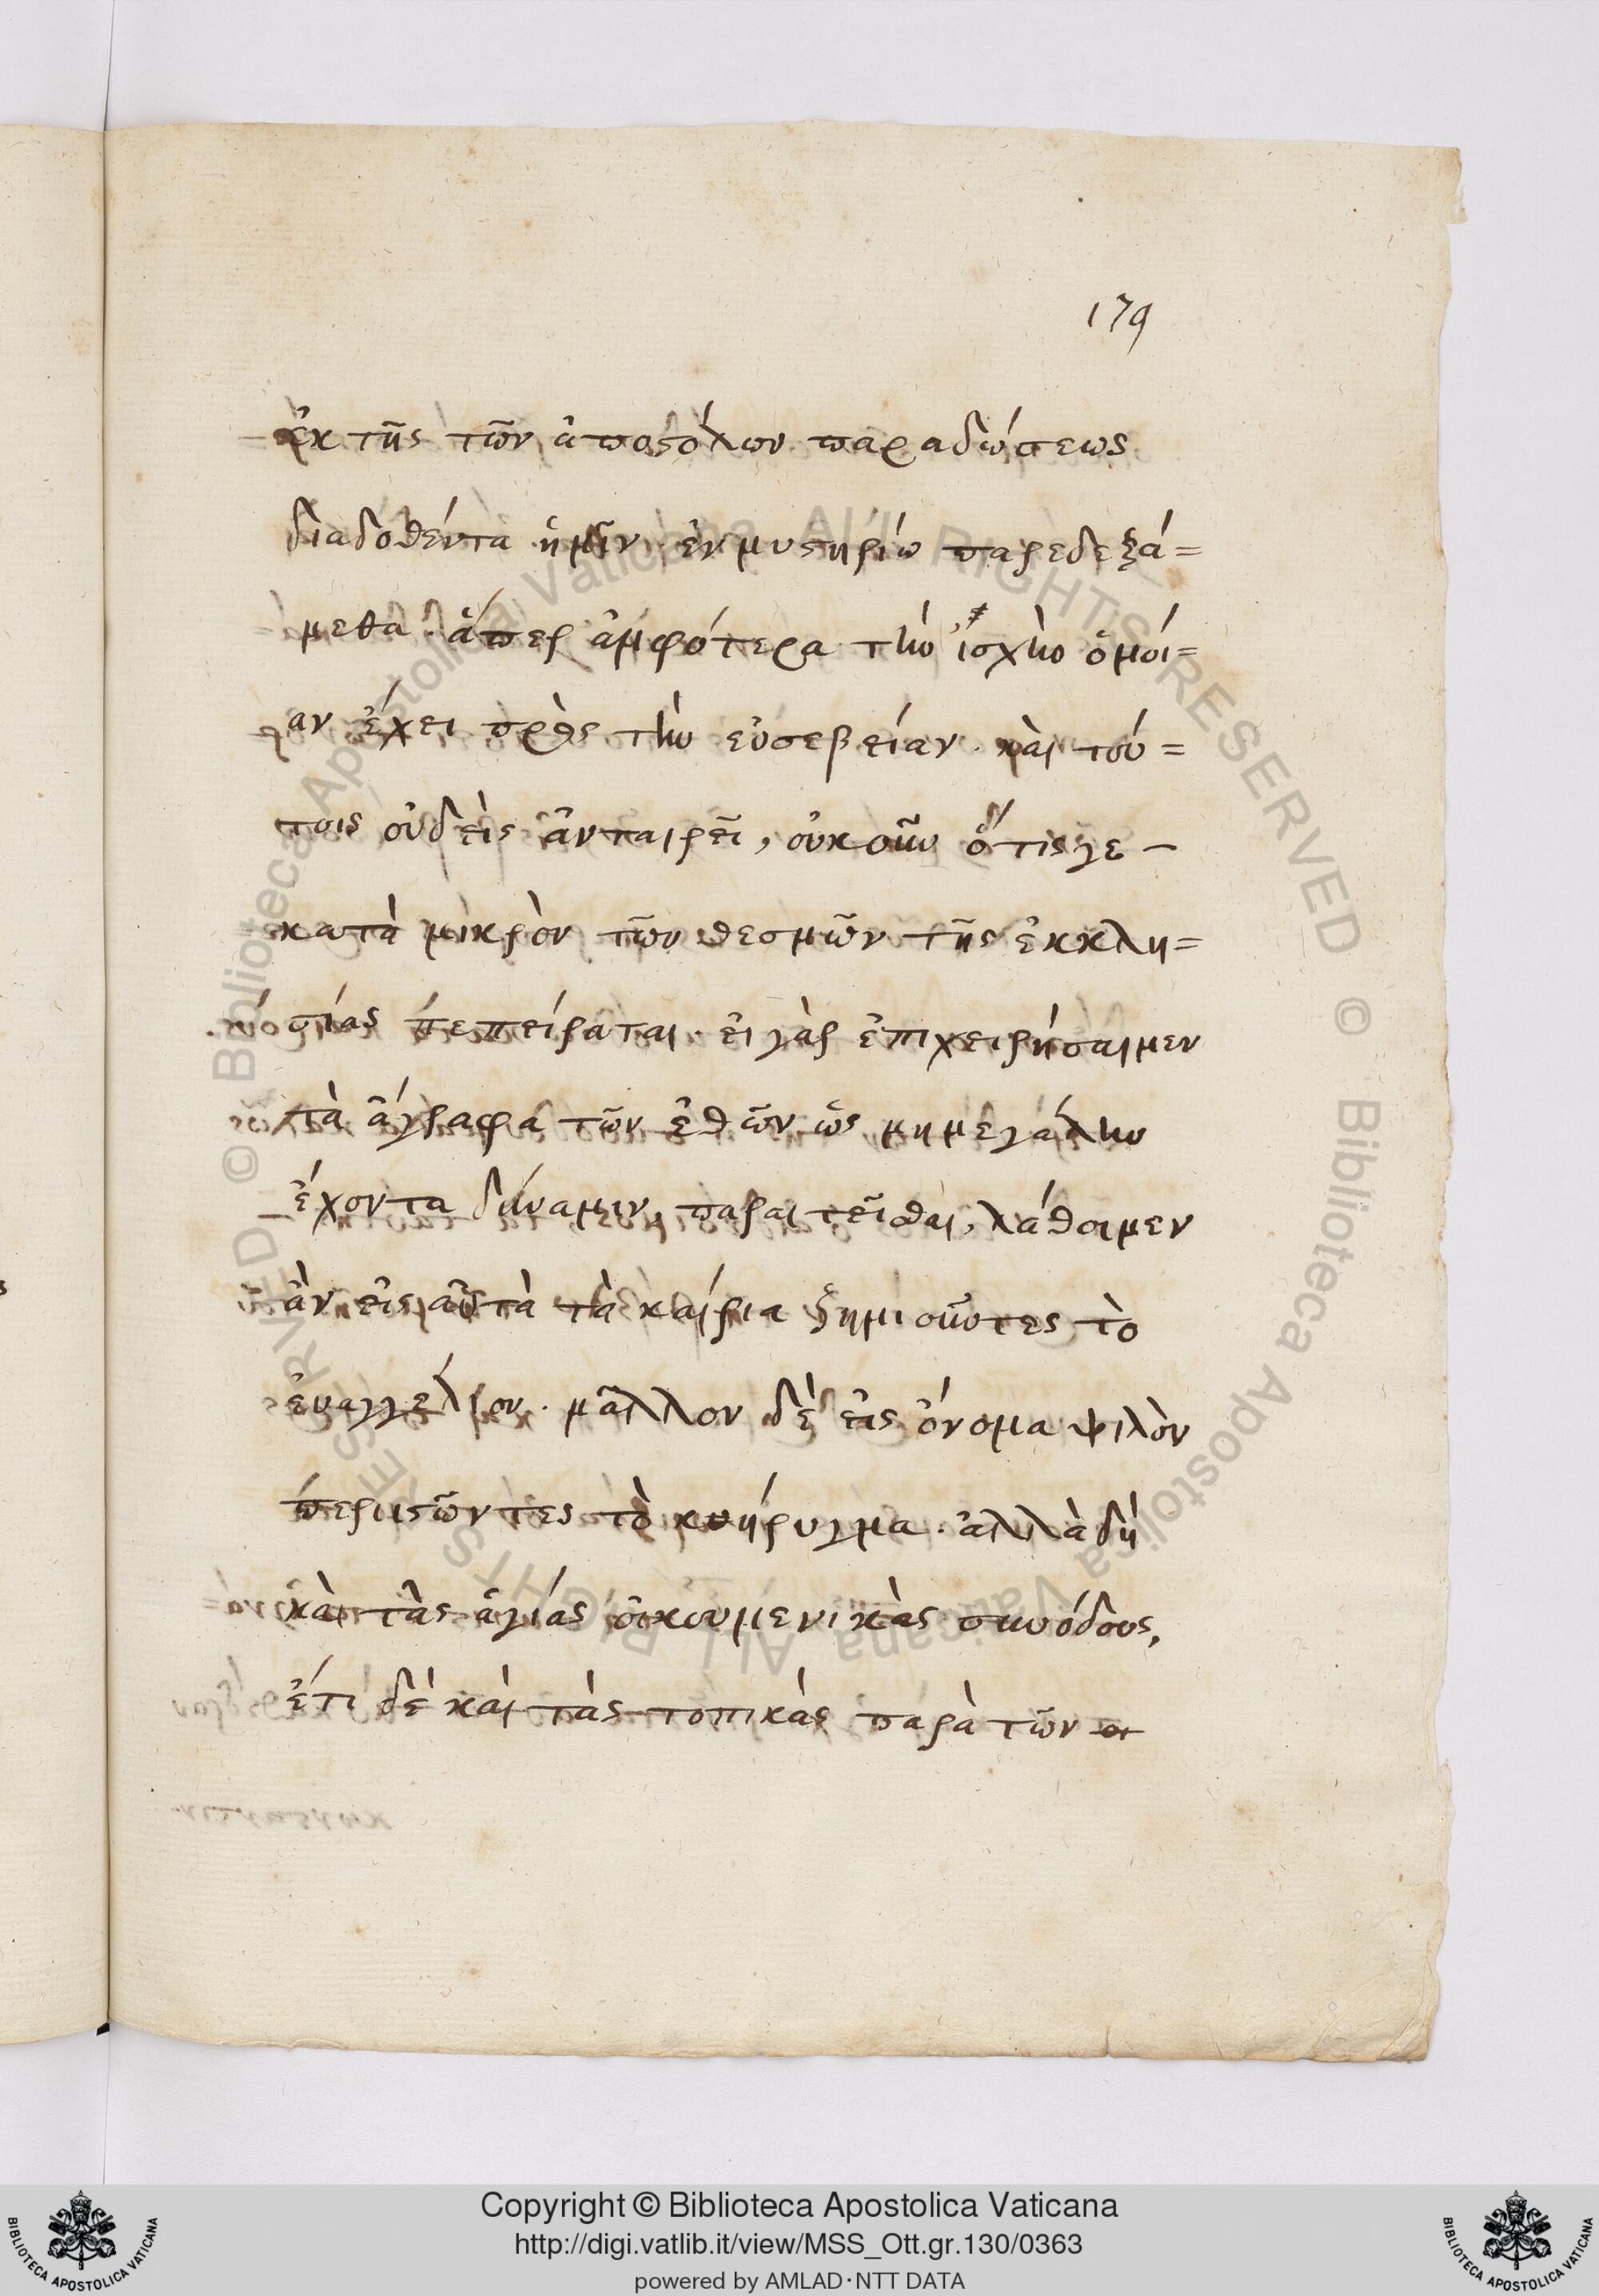 179
ἐκ τῆς τῶν ἀποστόλων παραδώσεως
διαδοθέντα ἡμῖν ἐν μυστηρίω παρεδεξά=
μεθα· ἅπερ ἀμφότερα τὴν ἰσχὴν ὁμοί=
αν ἔχει πρὸς τὴν εὐσεβείαν· καὶ τού=
τοις οὐδεὶς ἀνταιρεῖ, οὐκοῦν ὅτις γε –
κατὰ μικρὸν τῶν θεσμῶν τῆς ἐκκλη=
σίας πεπείραται· εἰ γὰρ ἐπιχειρήσαιμεν
τὰ ἄγραφα τῶν ἐθῶν ὡς μὴ μεγάλην
ἔχοντα δύναμιν, παραιτεῖσθαι, λάθοιμεν
ἂν εἰς αὐτὰ τὰ καίρια ζημιοῦντες τὸ
ἐυαγγέλιον· μᾶλλον δὲ εἰς ὄνομα ψιλὸν
περιιστῶντες τὸ κήρυγμα· ἀλλὰ δὴ
καὶ τὰς ἁγίας οἰκουμενικὰς συνόδους,
ἔτι δὲ καὶ τὰς τοπικὰς παρὰ τῶν
Copyright © Biblioteca Apostolica Vaticana
http://digi.vatlib.it/view/MSS_Ott.gr.130/0363
powered by AMLAD·NTT DATA
BIBLIOTECA APOSTOLICA VATICANA
BIBLIOTECA APOSTOLICA VATICANA
© Biblioteca Apostolica Vaticana ALL RIGHTS RESERVED © Biblioteca Apostolica Vaticana ALL RIGHTS RESERVED